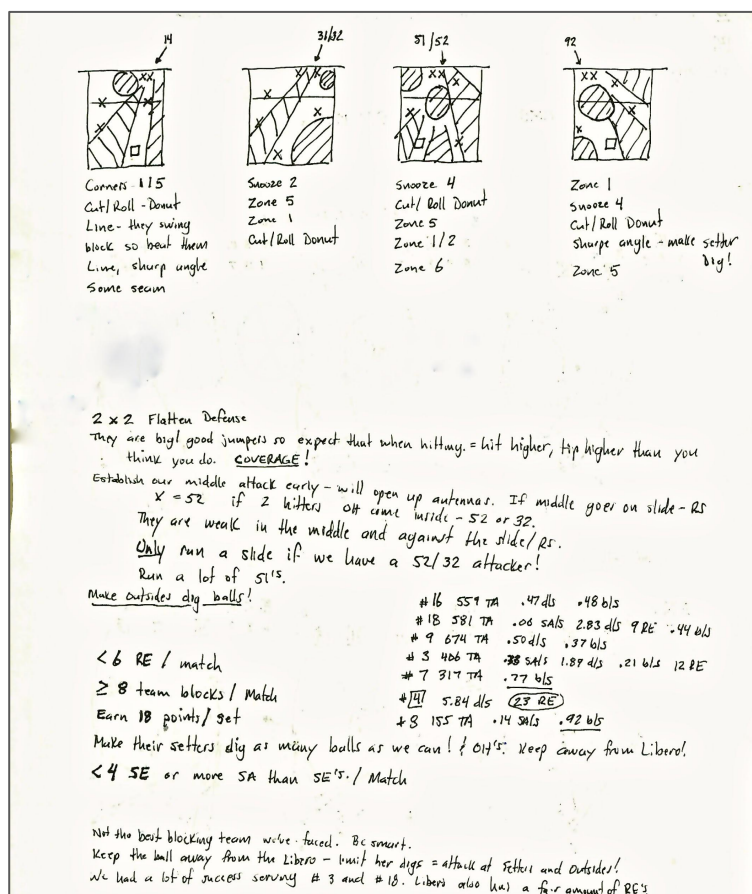 14
31/32
51/52
92
Corners 1/5
Cut/Roll - Donut
Line - they swing
block so beat them
Line, sharp angle
Some seam
Snooze 2
Zone 5
Zone 1
Cut/Roll Donut
Snooze 4
Cut/Roll Donut
Zone 5
Zone 1/2
Zone 6
Zone 1
Snooze 4
Cut/Roll Donut
Sharpe angle - make setter
Dig!
Zone 5
2 x 2 Flatten Defense
They are big! good jumpers so expect that when hitting. = hit higher, tip higher than you
think you do. COVERAGE!
Establish our middle attack early - will open up antennas. If middle goes on slide - RS
X = 52 if 2 hitters OH come inside - 52 or 32.
They are weak in the middle and against the slide/RS.
Only run a slide if we have a 52/32 attacker!
Run a lot of 51's.
Make outsides dig balls!
#16 559 TA .47 d/s .48 b/s
#18 581 TA .06 SA/s 2.83 d/s 9 RE .44 b/s
#9 674 TA .50 d/s .37 b/s
#3 406 TA .38 SA/s 1.89 d/s .21 b/s 12 RE
#7 317 TA .77 b/s
#4 5.84 d/s 23 RE
#8 155 TA .14 SA/s .92 b/s
<6 RE / match
≥ 8 team blocks / Match
Earn 18 points / set
Make their setters dig as many balls as we can! & OH's. Keep away from Libero!
<4 SE or more SA than SE's. / Match
Not the best blocking team we've faced. Be smart.
Keep the ball away from the Libero - limit her digs = attack at setters and outsides!
We had a lot of success serving #3 and #18. Libero also has a fair amount of RE's